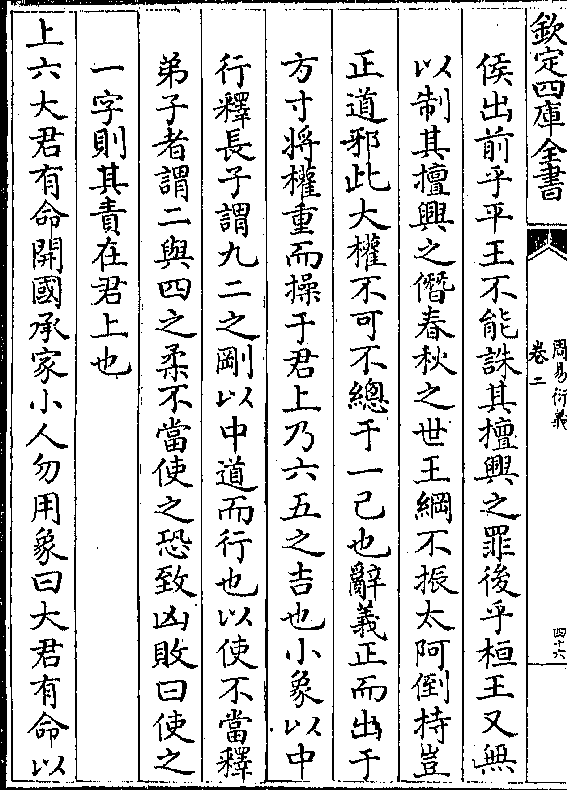 欽定四庫全書
周易衍義
卷二
四十六
侯出前乎平王不能誅其擅興之罪後乎桓王又無
以制其擅興之僭春秋之世王綱不振太阿倒持豈
正道邪此大權不可不總于一己也辭義正而出于
方寸將權重而操于君上乃六五之吉也小象以中
行釋長子謂九二之剛以中道而行也以使不當釋
弟子者謂二與四之柔不當使之恐致凶敗曰使之
一字則其責在君上也
上六大君有命開國承家小人勿用象曰大君有命以